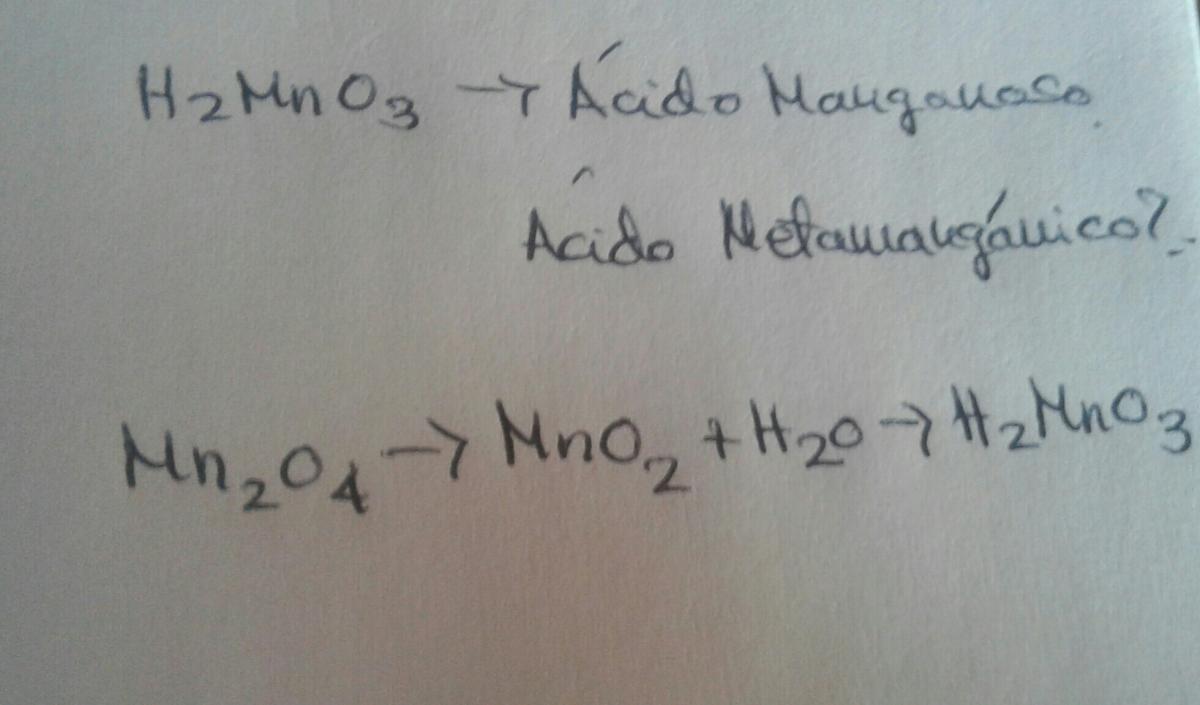 H₂MnO₃ → Ácido Manganoso.
Ácido Metamangánico?
Mn₂O₄ → MnO₂ + H₂O → H₂MnO₃